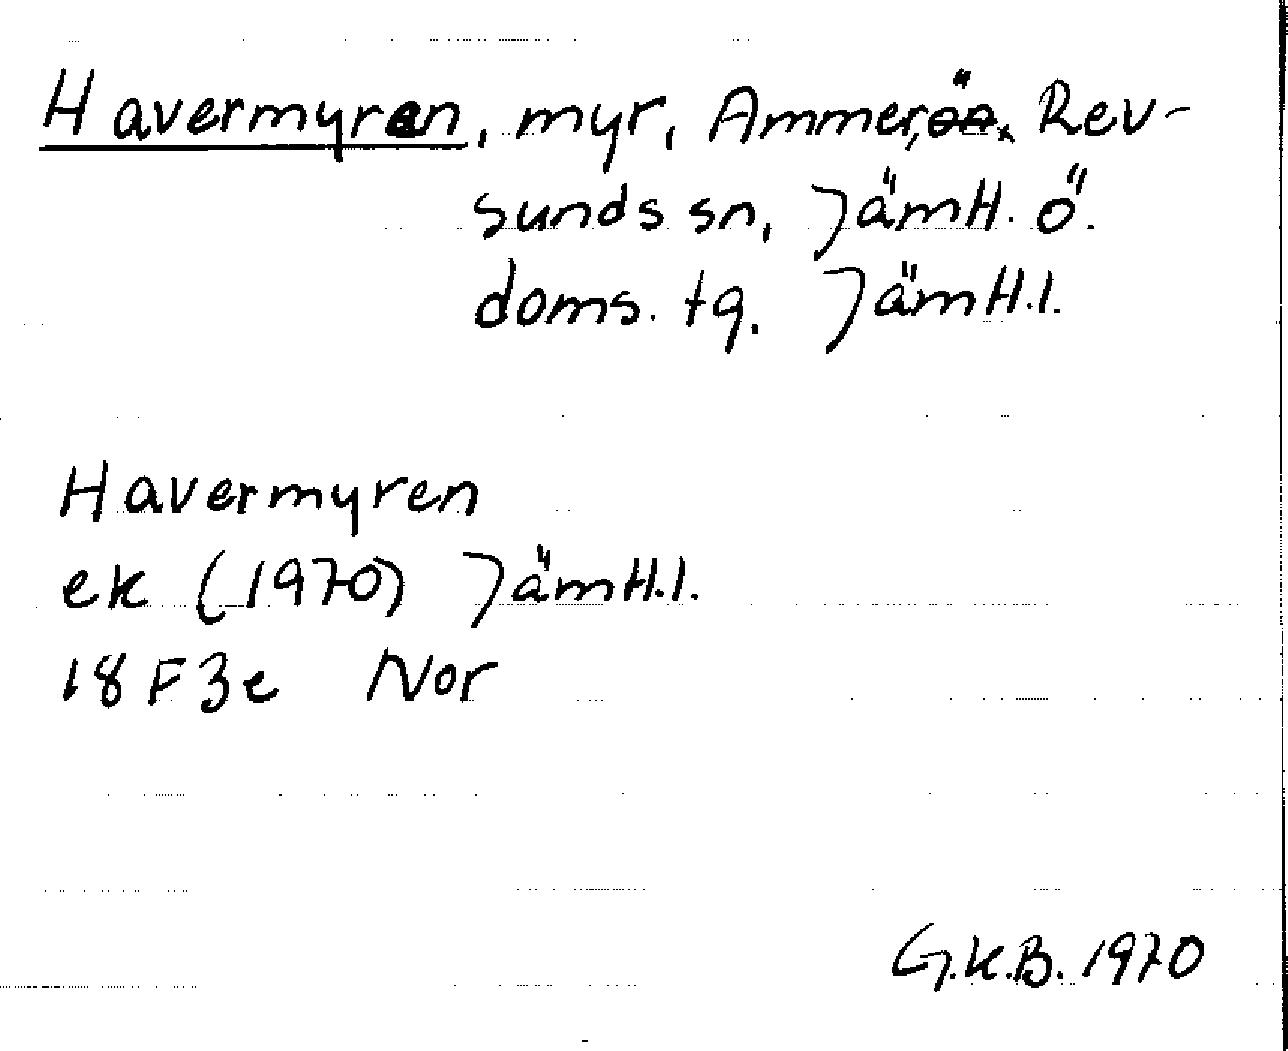 Havermyren, myr, Ammer, Rev-
sunds sn, Jämtl. ö.
doms. tg. Jämtl. l.
Havermyren
ek (1970) Jämtl. l.
18 F 3e Nor
G.K.B. 1970